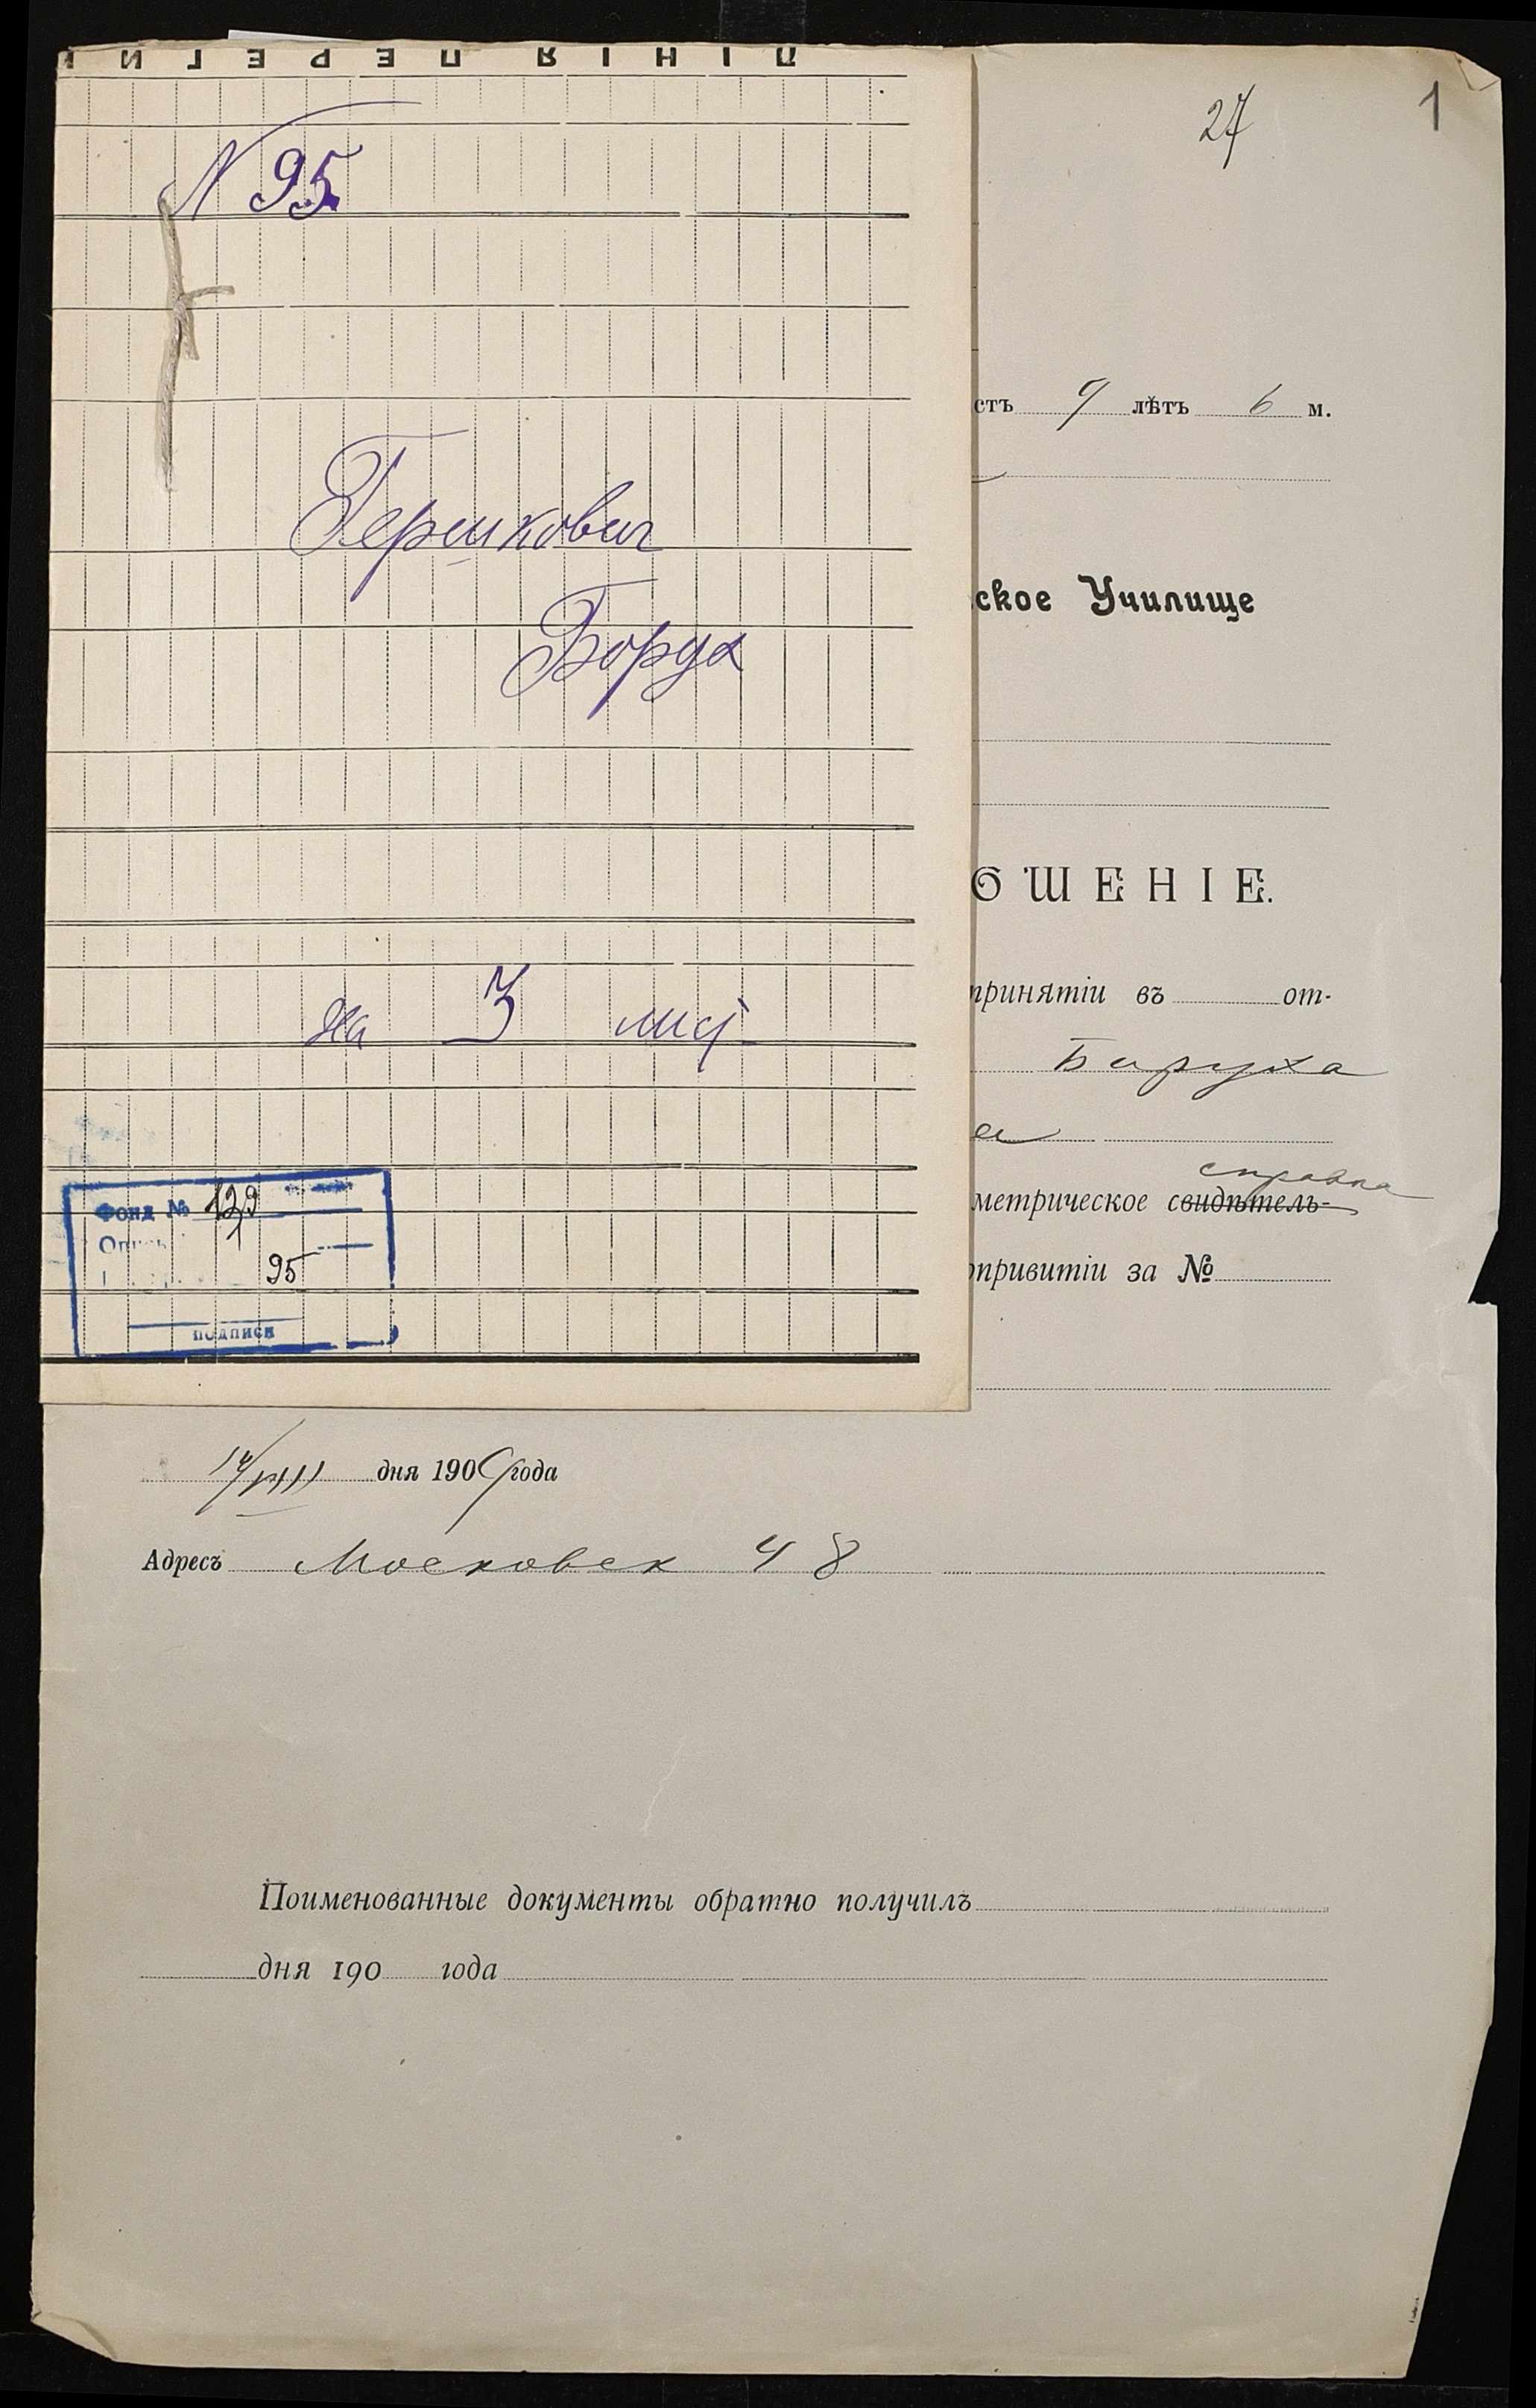 N 95
Гершкович
Борух
на 3 лис
Фонд № 129
1
95
подписи
27
1
стъ 9 лѣтъ 6 м.
ское Училище
ОШЕНІЕ.
принятіи въ от-
Баруха
справка
метрическое свидѣтель-
опривитіи за №
14/VIII дня 1909 года
Адресъ Московск 48
Поименованные документы обратно получилъ
дня 190 года